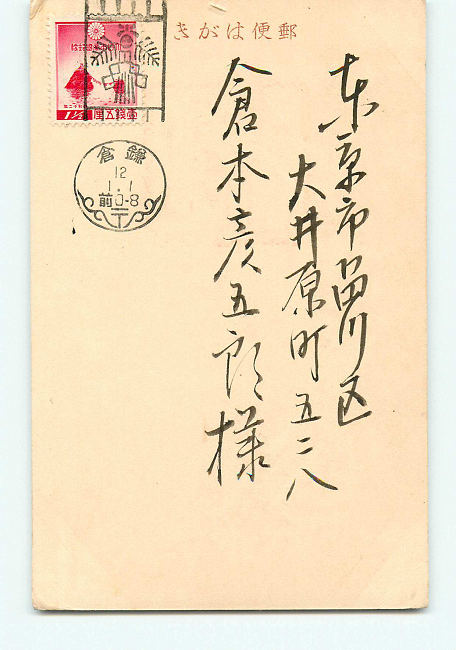 郵便はがき
東京市品川区
大井原町五二八
倉本彦五郎様
鎌倉
12
1.1
前0-8
〒
1½
壹錢五厘